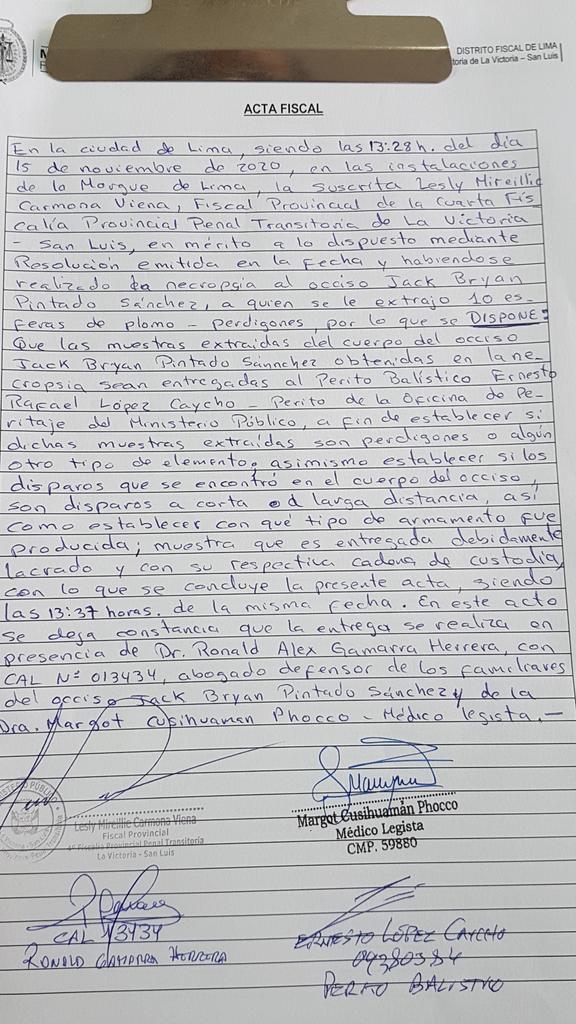 DISTRITO FISCAL DE LIMA
toria de La Victoria – San Luis
ACTA FISCAL
En la ciudad de Lima, siendo las 13:28h. del día
15 de noviembre de 2020, en las instalaciones
de la Morgue de Lima, la suscrita Lesly Mireillie
Carmona Viena, Fiscal Provincial de la Cuarta Fis-
calía Provincial Penal Transitoria de La Victoria
- San Luis, en mérito a lo dispuesto mediante
Resolución emitida en la fecha y habiendose
realizado la necropsia al occiso Jack Bryan
Pintado Sánchez, a quien se le extrajo 10 es-
feras de plomo - perdigones, por lo que se DISPONE:
Que las muestras extraídas del cuerpo del occiso
Jack Bryan Pintado Sánnchez obtenidas en la ne-
cropsia sean entregadas al Perito Balístico Ernesto
Rafael López Caycho - Perito de la Oficina de Pe-
ritaje del Ministerio Público, a fin de establecer si
dichas muestras extraídas son perdigones o algún
otro tipo de elemento, asimismo establecer si los
disparos que se encontró en el cuerpo del occiso,
son disparos a corta o larga distancia, así
como establecer con qué tipo de armamento fue
producida; muestra que es entregada debidamente
lacrado y con su respectiva cadena de custodia,
con lo que se concluye la presente acta, siendo
las 13:37 horas. de la misma fecha. En este acto
se deja constancia que la entrega se realiza en
presencia de Dr. Ronald Alex Gamarra Herrera, con
CAL Nº 013434, abogado defensor de los familiares
del occiso Jack Bryan Pintado Sánchez y de la
Dra. Margot Cusihuaman Phocco - Médico legista.-
Lesly Mireillie Carmona Viena
Fiscal Provincial
4º Fiscalía Provincial Penal Transitoria
La Victoria - San Luis
Margot Cusihuamán Phocco
Médico Legista
CMP. 59880
CAL 13434
RONALD GAMARRA HERRERA
ERNESTO LÓPEZ CAYCHO
09380384
PERITO BALISTICO